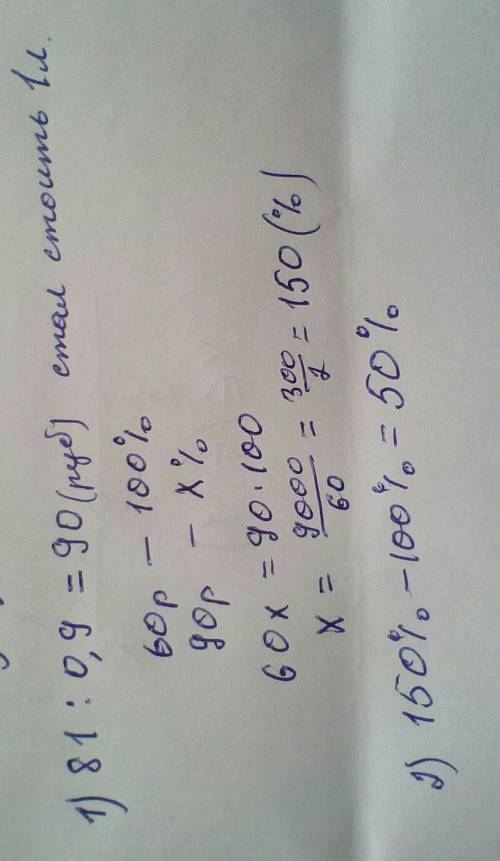 1) 81 : 0,9 = 90 (руб) стал стоить 1 л.
60р — 100%
90р — x%
60x = 90 · 100
x = 9000/60 = 300/2 = 150 (%)
2) 150% — 100% = 50%